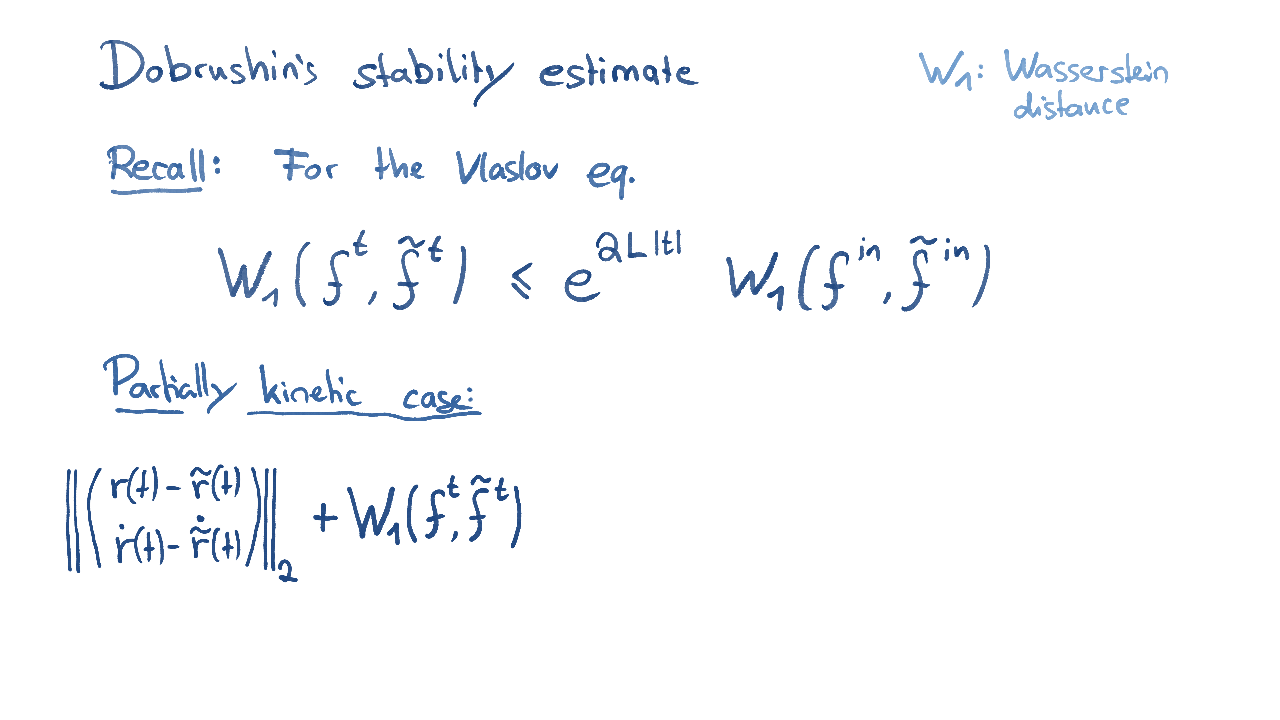 Dobrushin's stability estimate
W₁: Wasserstein
distance
Recall: For the Vlaslov eq.
W₁(fᵗ, f̃ᵗ) ⩽ e^{2L|t|} W₁(f^{in}, f̃^{in})
Partially kinetic case:
‖(r(t) - r̃(t)
ṙ(t) - \dot{r̃}(t))‖₂ + W₁(fᵗ, f̃ᵗ)